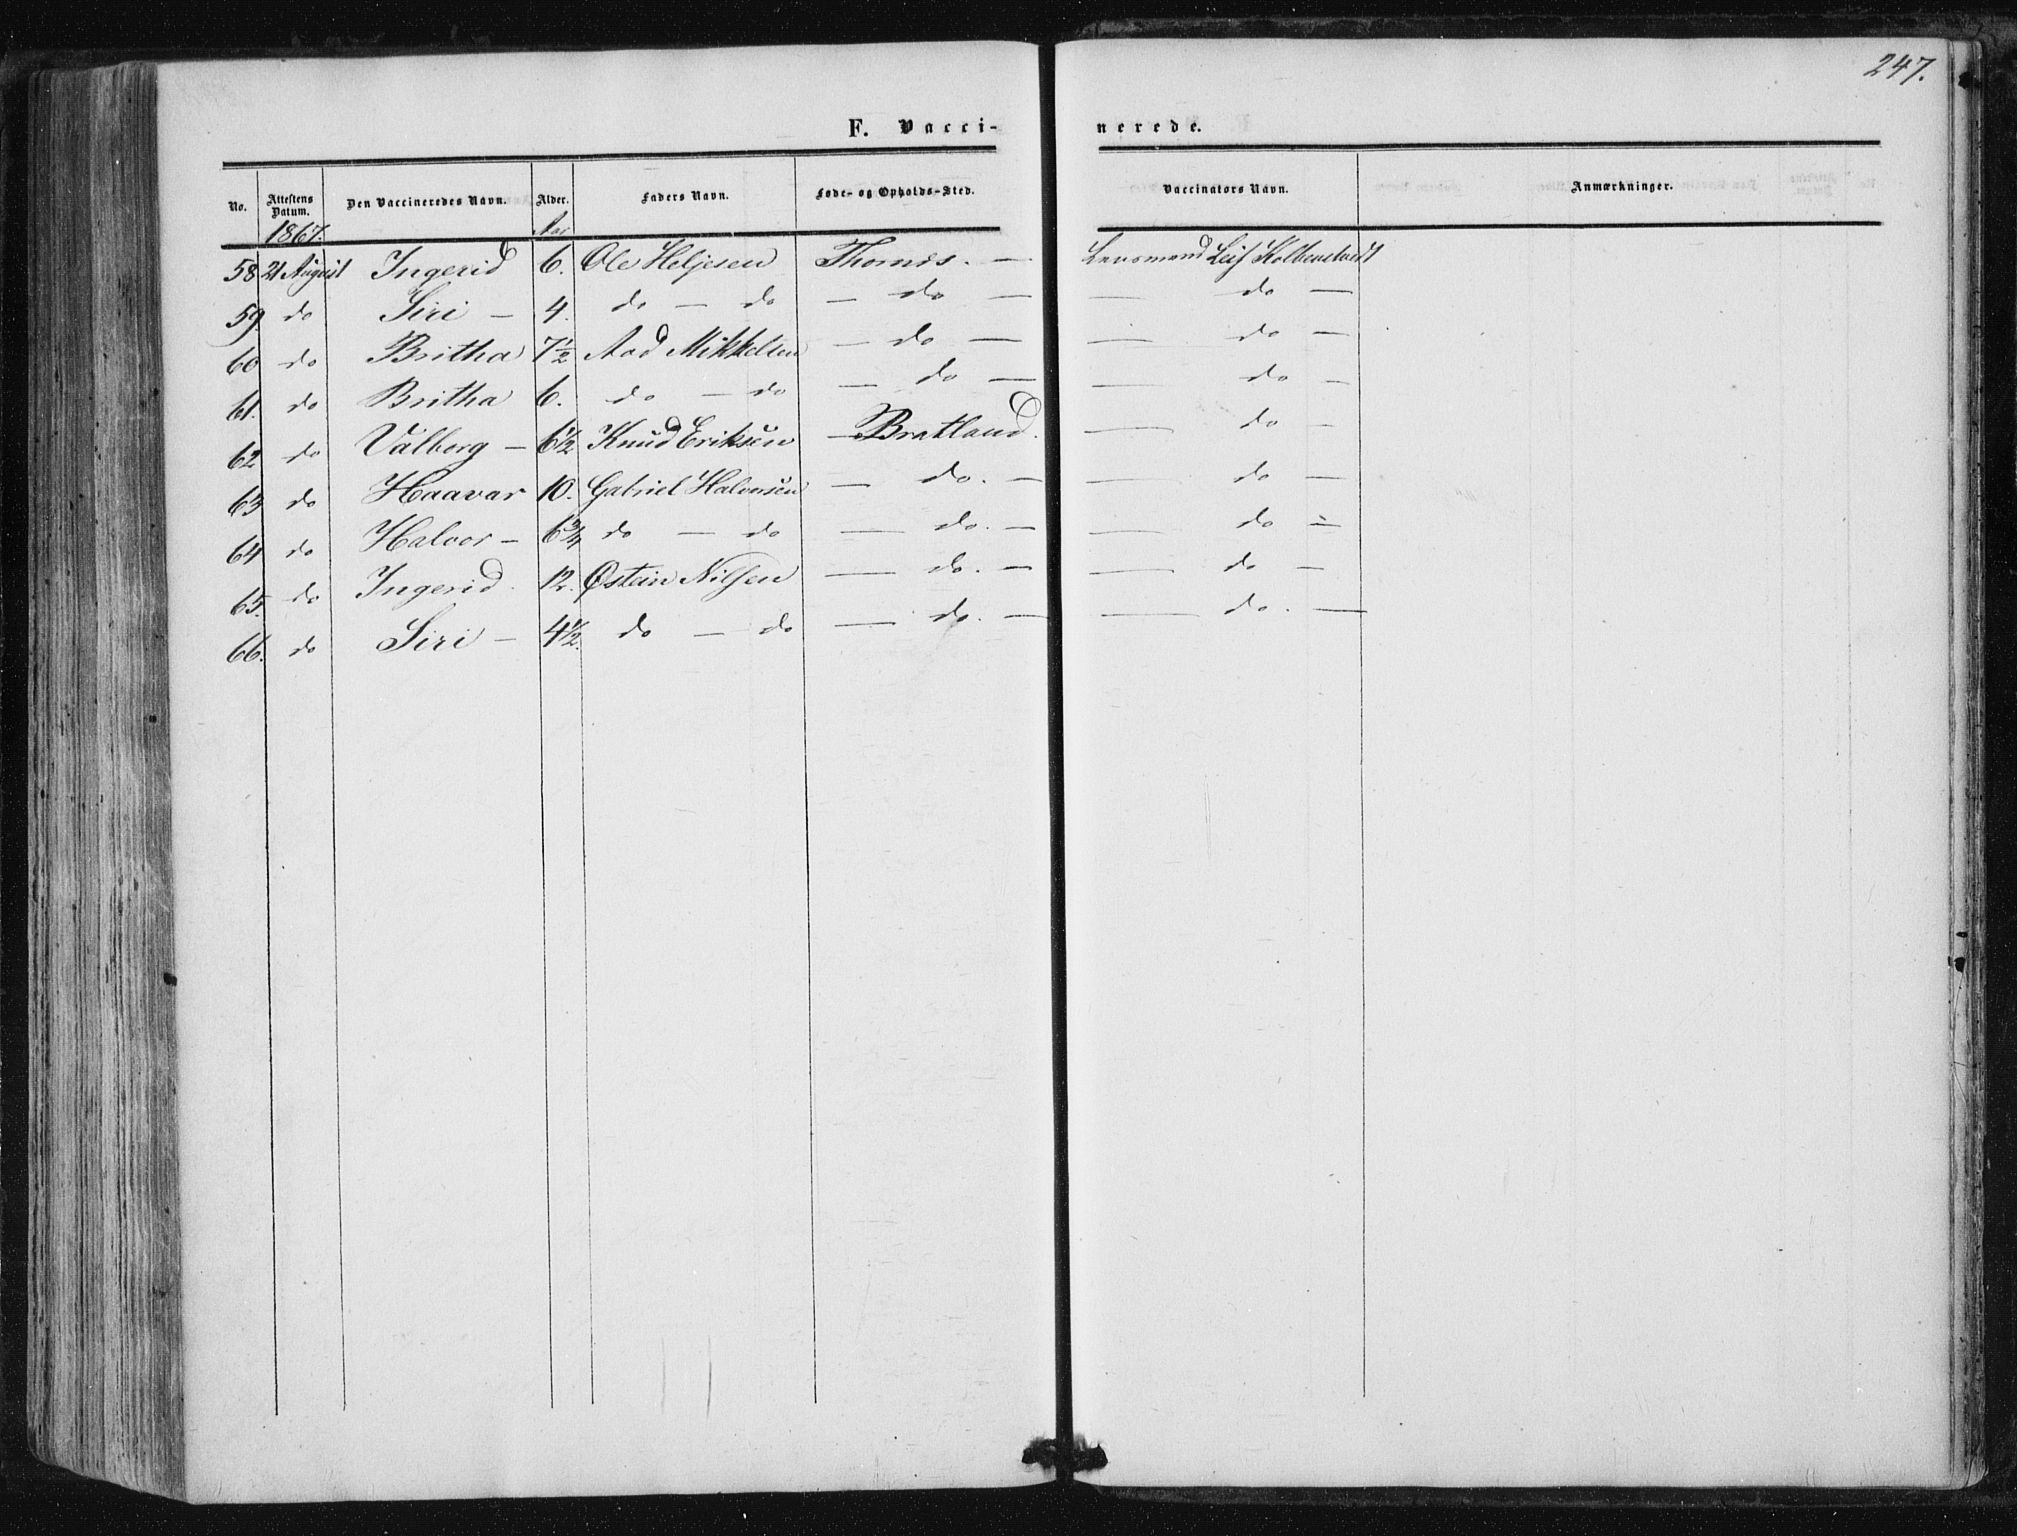 247.
F. Vacci- nerede.
No. Attestens Datum. Den Vaccineredes Navn. Alder. Faders Navn. Føde- og Opholds-Sted. Vaccinators Navn. Anmærkninger.
1867. Aar
58 21 August Ingerid 6. Ole Heljesen Thomés. — Lensmand Leif Kolbenstvedt
59. do Siri — 4. do — do — do — — do —
60 do Britha 7 1/2 Aad Mikkelsen — do — — do —
61. do Britha 6. do — do — do — — do —
62 do Valborg — 6 1/2 Knud Eriksen — Bratland. — do —
63 do Haavar 10. Gabriel Halvorsen — do. — — do —
64 do Halvor — 6 3/4 do — do — do. — — do —
65. do Ingerid. 12. Østein Nilsen — do. — — do —
66. do Siri — 4 1/2. do — do — do. — — do. —